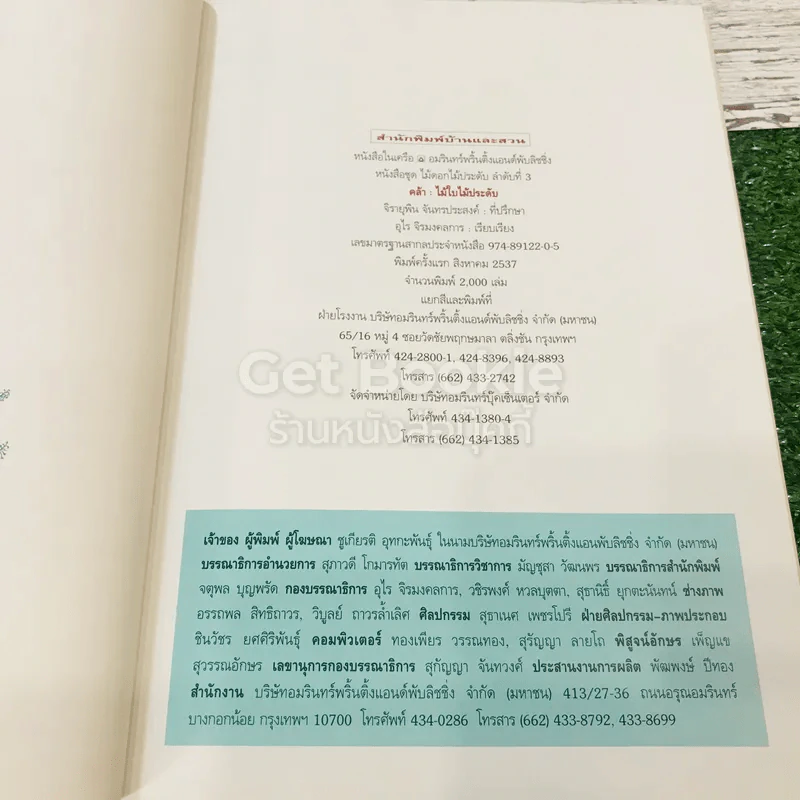 สำนักพิมพ์บ้านและสวน
หนังสือในเครือ อมรินทร์พริ้นติ้งแอนด์พับลิชชิ่ง
หนังสือชุด ไม้ดอกไม้ประดับ ลำดับที่ 3
คล้า : ไม้ใบไม้ประดับ
จิรายุพิน จันทรประสงค์ : ที่ปรึกษา
อุไร จิรมงคลการ : เรียบเรียง
เลขมาตรฐานสากลประจำหนังสือ 974-89122-0-5
พิมพ์ครั้งแรก สิงหาคม 2537
จำนวนพิมพ์ 2,000 เล่ม
แยกสีและพิมพ์ที่
ฝ่ายโรงงาน บริษัทอมรินทร์พริ้นติ้งแอนด์พับลิชชิ่ง จำกัด (มหาชน)
65/16 หมู่ 4 ซอยวัดชัยพฤกษมาลา ตลิ่งชัน กรุงเทพฯ
โทรศัพท์ 424-2800-1, 424-8396, 424-8893
Get Bookie
โทรสาร (662) 433-2742
จัดจำหน่ายโดย บริษัทอมรินทร์บุ๊คเซ็นเตอร์ จำกัด
โทรศัพท์ 434-1380-4
ร้านหนังสือบุ๊คกี้
โทรสาร (662) 434-1385
เจ้าของ ผู้พิมพ์ ผู้โฆษณา ชูเกียรติ อุทกะพันธุ์ ในนามบริษัทอมรินทร์พริ้นติ้งแอนพับลิชชิ่ง จำกัด (มหาชน)
บรรณาธิการอำนวยการ สุภาวดี โกมารทัต บรรณาธิการวิชาการ มัญชุสา วัฒนพร บรรณาธิการสำนักพิมพ์
จตุพล บุญพรัด กองบรรณาธิการ อุไร จิรมงคลการ, วชิรพงศ์ หวลบุตตา, สุธานิธิ์ ยุกตะนันทน์ ช่างภาพ
อรรถพล สิทธิถาวร, วิบูลย์ ถาวรล้ำเลิศ ศิลปกรรม สุธาเนศ เพชรโปรี ฝ่ายศิลปกรรม-ภาพประกอบ
ชินวัชร ยศศิริพันธุ์ คอมพิวเตอร์ ทองเพียร วรรณทอง, สุรัญญา ลายโถ พิสูจน์อักษร เพ็ญแข
สุวรรณอักษร เลขานุการกองบรรณาธิการ สุกัญญา จันทวงศ์ ประสานงานการผลิต พัฒพงษ์ ปีทอง
สำนักงาน บริษัทอมรินทร์พริ้นติ้งแอนด์พับลิชชิ่ง จำกัด (มหาชน) 413/27-36 ถนนอรุณอมรินทร์
บางกอกน้อย กรุงเทพฯ 10700 โทรศัพท์ 434-0286 โทรสาร (662) 433-8792, 433-8699